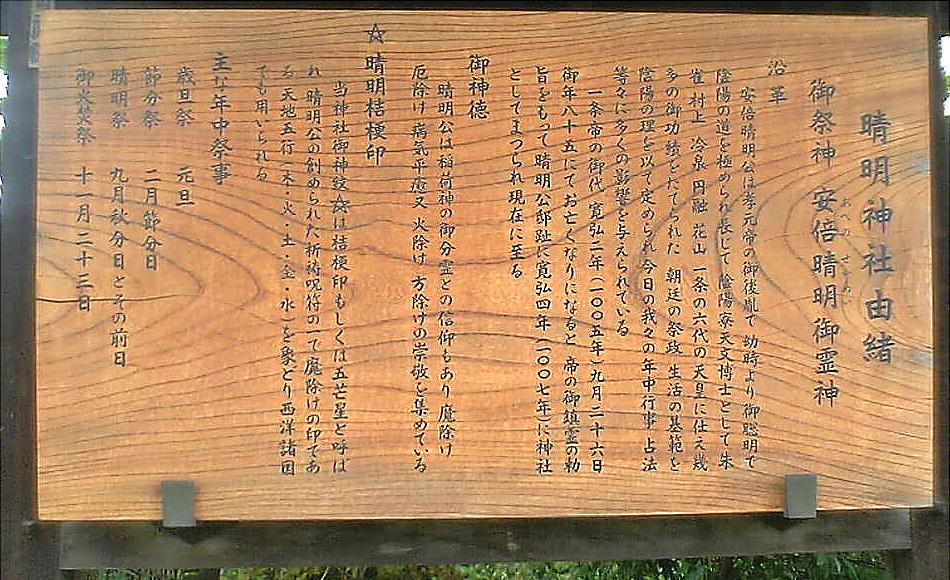 晴明神社由緒
御祭神 安倍晴明御霊神
あべの せいめい
沿革
安倍晴明公は孝元帝の御後胤で 幼時より御聡明で
陰陽の道を極められ長じて 陰陽寮天文博士として朱
雀 村上 冷泉 円融 花山 一条の六代の天皇に仕え幾
多の御功績をたてられた 朝廷の祭政 生活の基範を
陰陽の理を以て定められ今日の我々の年中行事 占法
等々に多くの影響を与えられている
一条帝の御代 寛弘二年(一〇〇五年)九月二十六日
御年八十五にてお亡くなりになると 帝の御鎮霊の勅
旨をもって 晴明公邸趾に寛弘四年(一〇〇七年)に神社
としてまつられ現在に至る
御神徳
晴明公は稲荷神の御分霊との信仰もあり 魔除け
厄除け 病気平癒又 火除け 方除けの崇敬を集めている
☆ 晴明桔梗印
当神社御神紋☆は桔梗印もしくは五芒星と呼ば
れ 晴明公の創められた祈祷呪符の一て魔除けの印であ
る 天地五行(木・火・土・金・水)を象どり 西洋諸国
でも用いられる
主な年中祭事
歳旦祭 元旦
節分祭 二月節分日
晴明祭 九月秋分日とその前日
御火焚祭 十一月二十三日